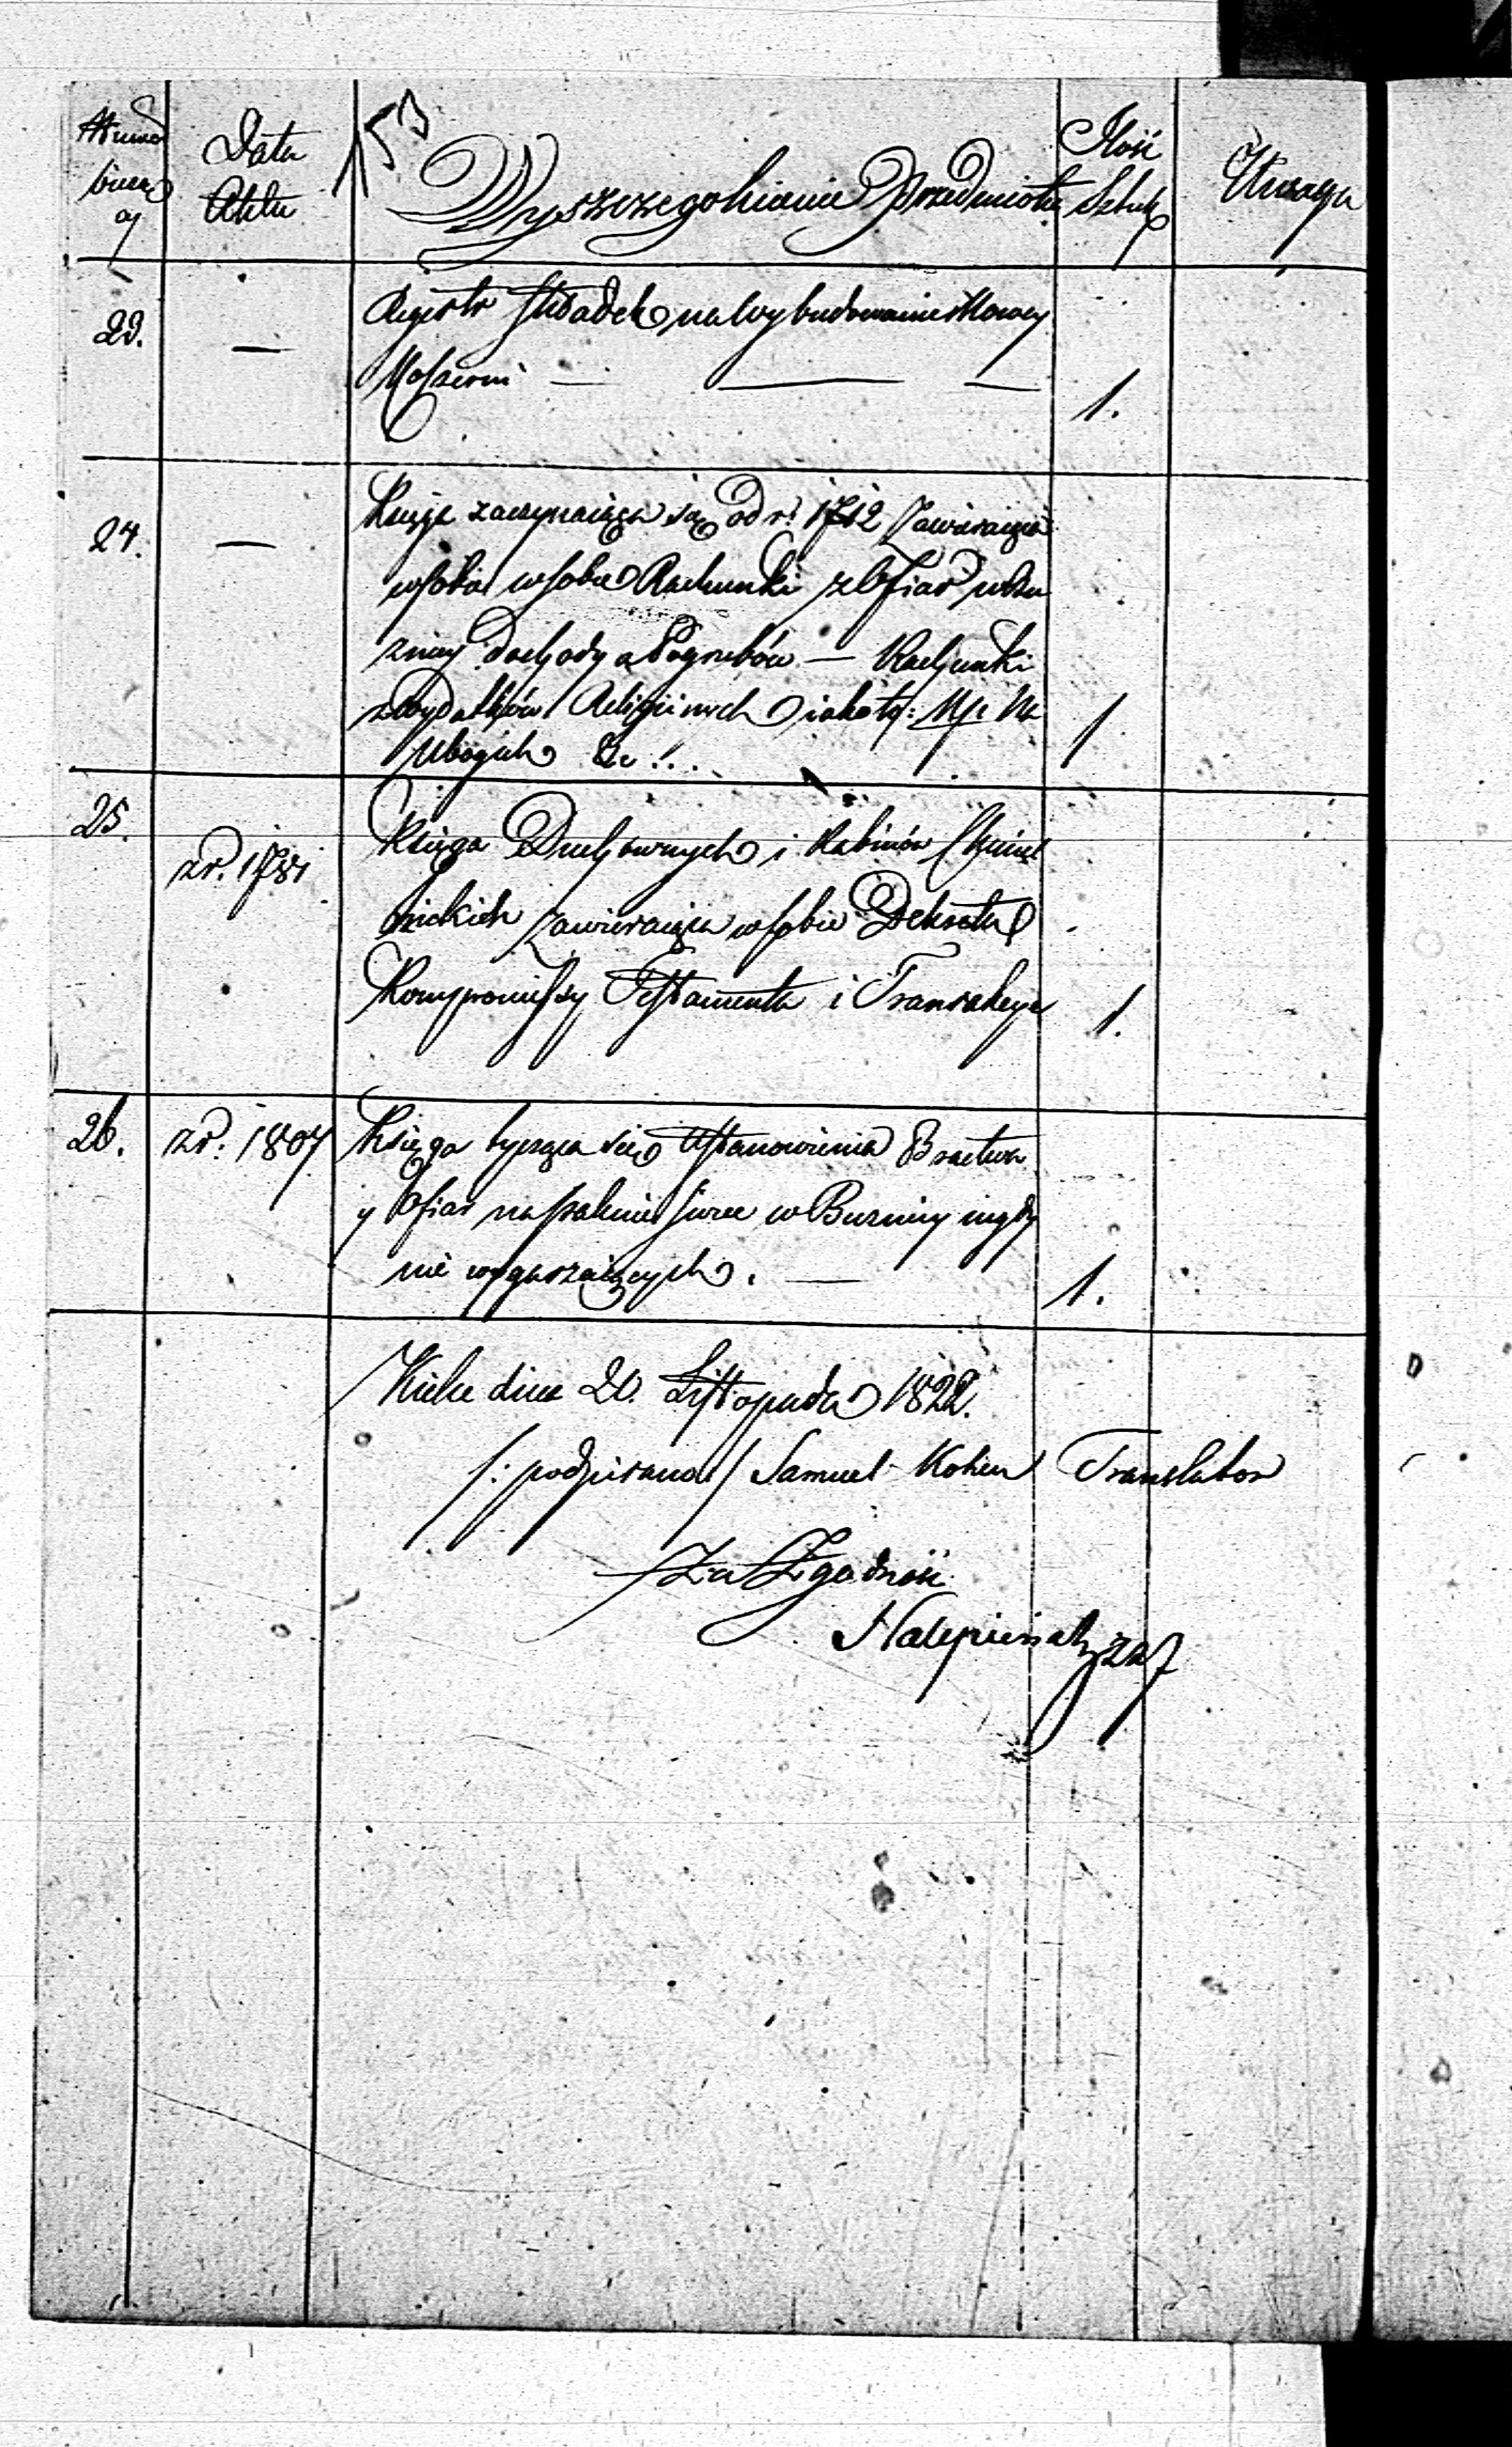 53
Numer bieżący
Data Aktu
Wyszczegolnienie Przedmiotu
Ilość Sztuk
Uwaga
23. —
Regestr Składek na wybudowanie Nowey
1.
24. —
Księga zaczynaiąca się od r. 1712 Zawieraiąca
w sobie w sobie Rachunki z Ofiar w Bu
znicy dochody a Pogrzebów — Rachunki
z wydatków Religiinych iakoto: Np. Na
Ubogich &c!..
1
25.
z r. 1781
Księga Duchownych i Rabinów Chmiel
nickich zawieraiąca w sobie Dekreta
Kompromissy Testamenta i Tranzakcye
1.
26. z r. 1807
Księga tycząca się Ustanowienia Bractwa
y Ofiar na palenie swiec w Buznicy nigdy
nie wygaszaiących. —
1.
Kielce dnia 20. Listopada 1822.
/: podpisano / Samuel Kohen Translator
Za Zgodność